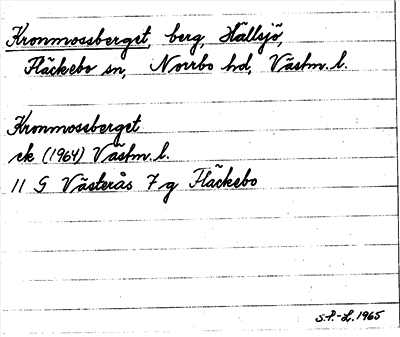 Kronmossberget, berg, Hällsjö,
Fläckebo sn, Norrbo hd, Västm. l.
Kronmossberget
ek (1964) Västm. l.
11 G Västerås 7 g Fläckebo
S.P.-L. 1965